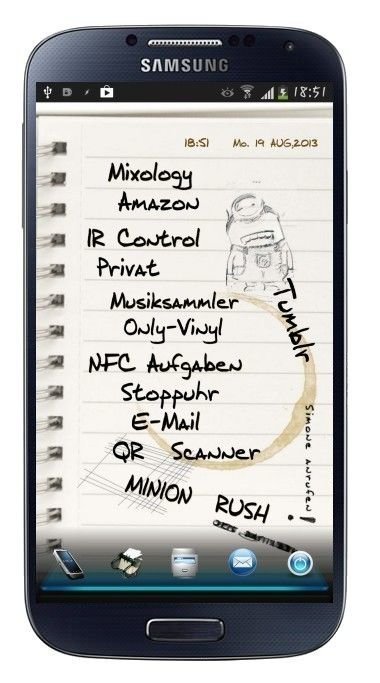 SAMSUNG
18:51
18:51 Mo. 19 AUG,2013
Mixology
Amazon
IR Control
Privat
Musiksammler
Tumblr
Only-Vinyl
NFC Aufgaben
Stoppuhr
Simone anrufen!
E-Mail
QR Scanner
MINION RUSH